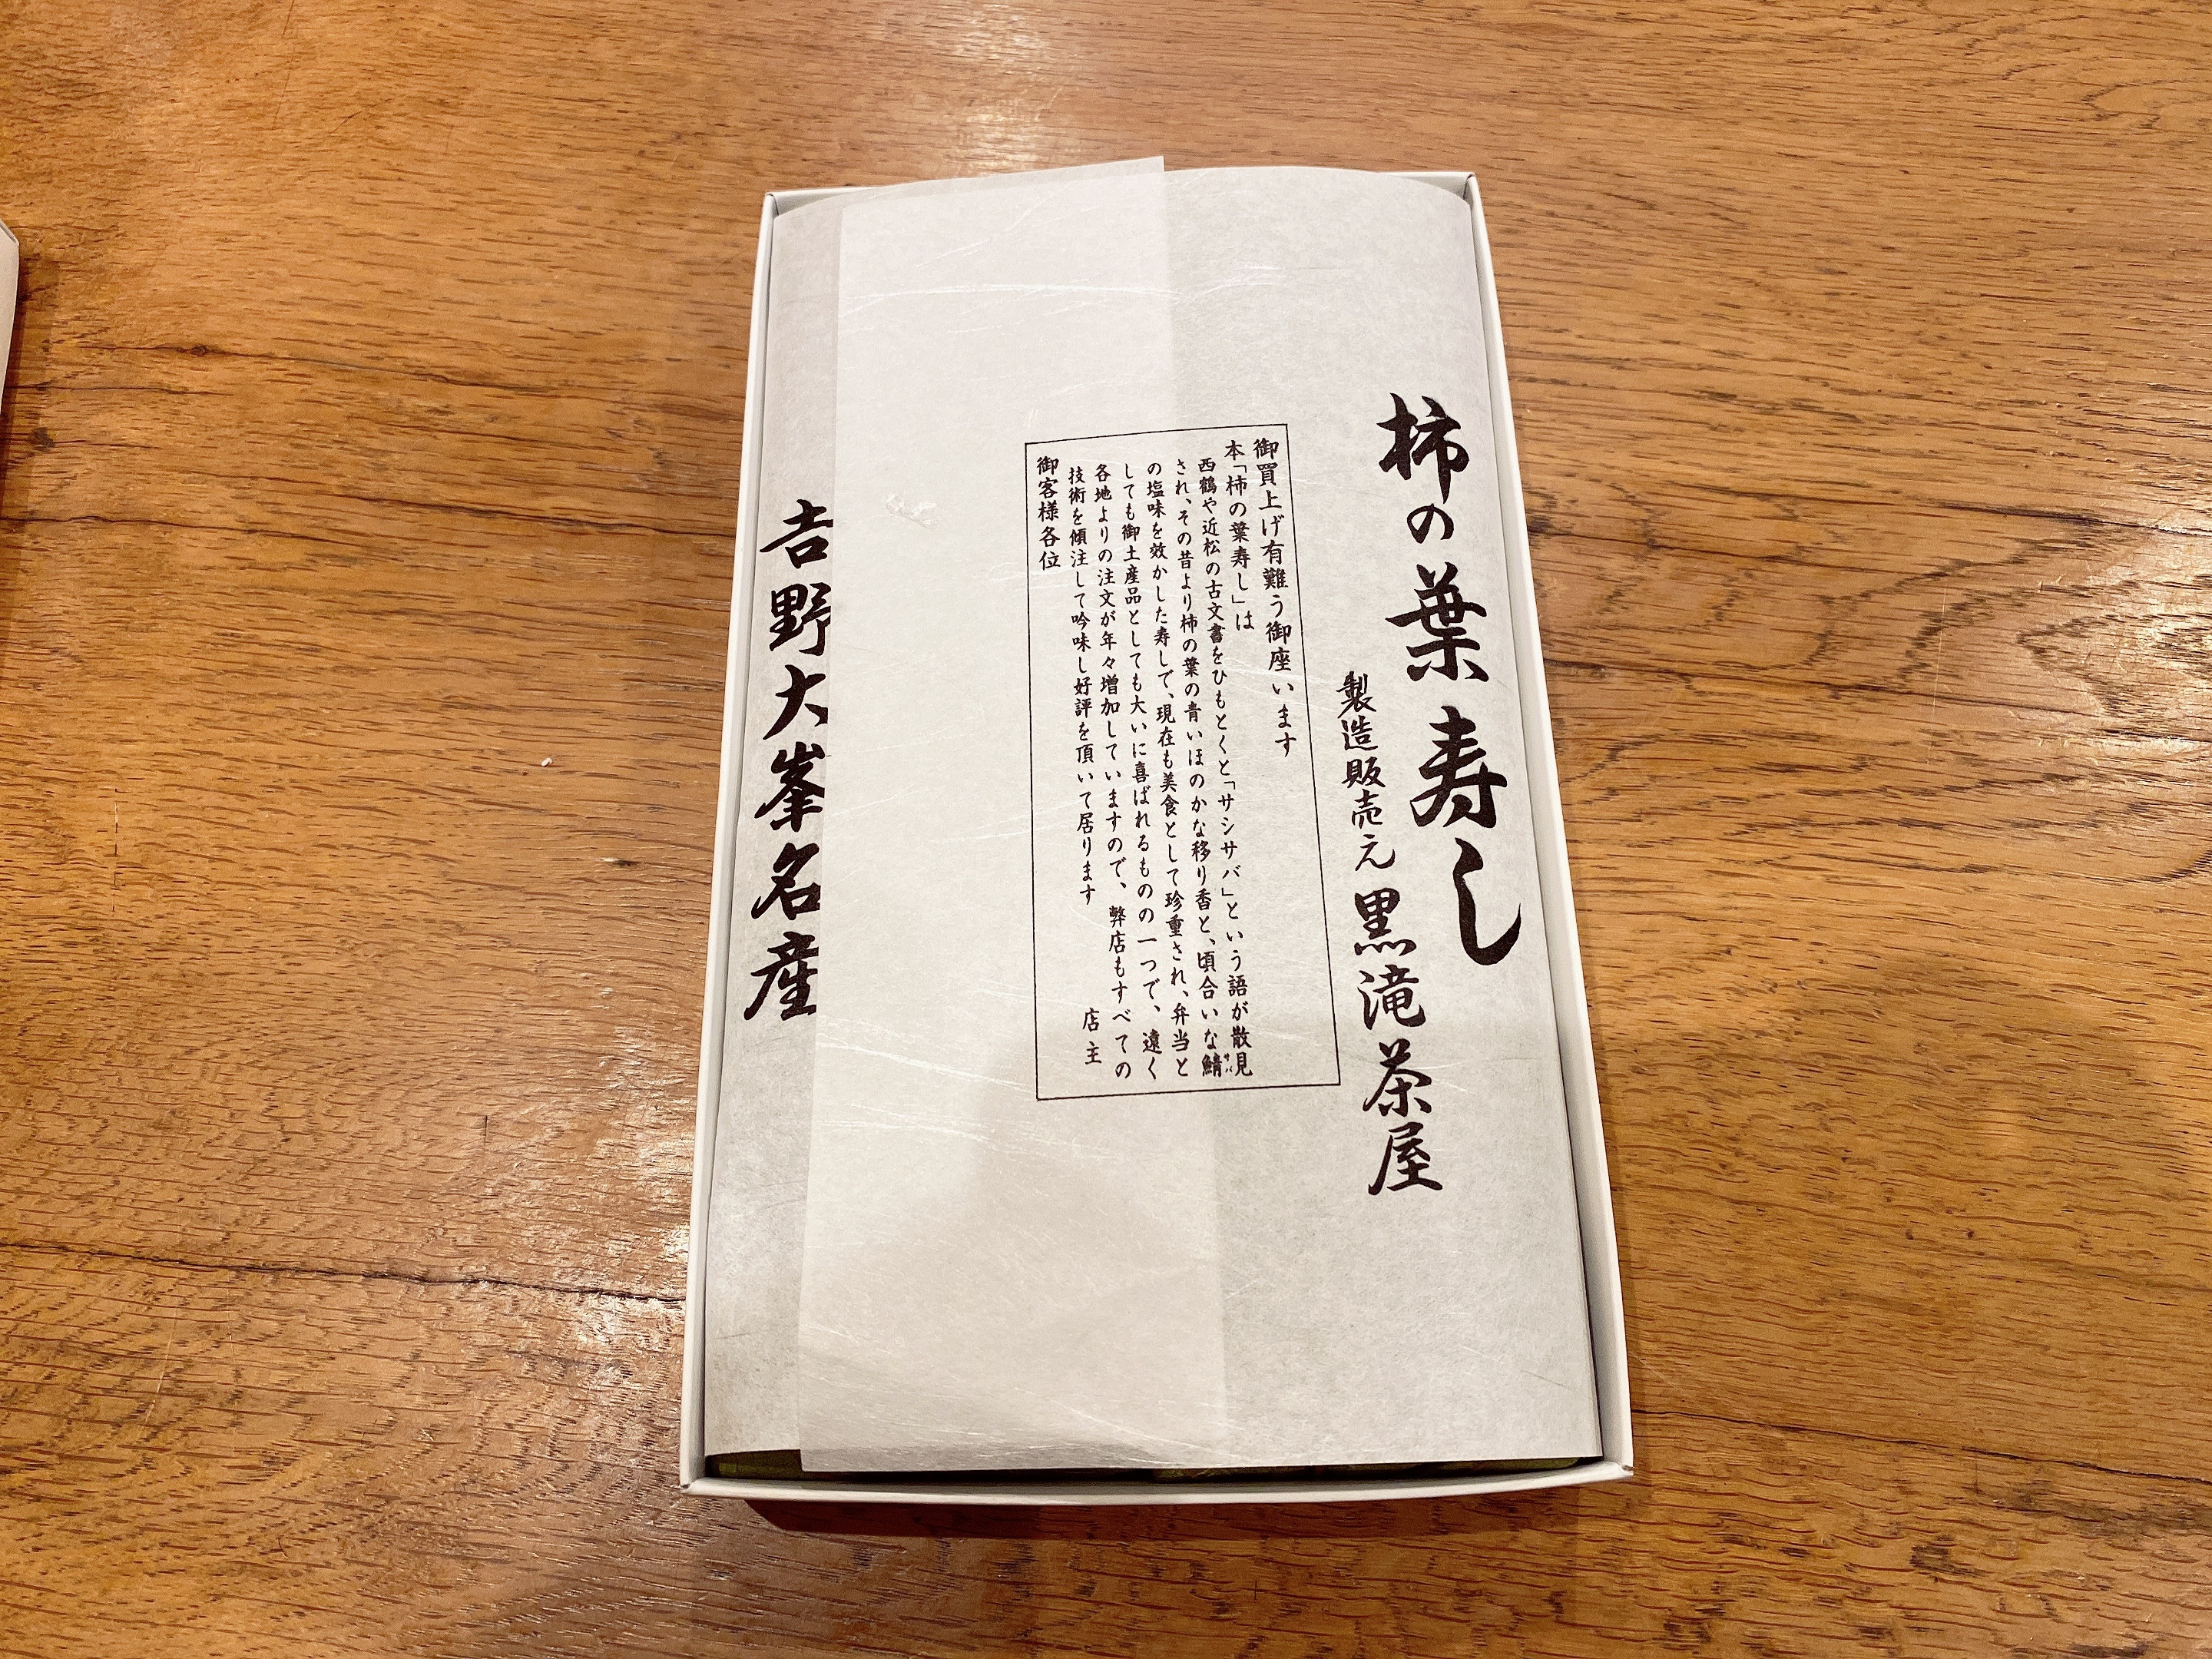 柿の葉寿し
製造販売元 黒滝茶屋
御買上げ有難う御座います
本「柿の葉寿し」は
西鶴や近松の古文書をひもとくと「サシサバ」という語が散見
され、その昔より柿の葉の青いほのかな移り香と、頃合いな鯖
サバ
の塩味を效かした寿しで、現在も美食として珍重され、弁当と
しても御土産品としても大いに喜ばれるものの一つで、遠く
各地よりの注文が年々増加していますので、弊店もすべての
技術を傾注して吟味し好評を頂いて居ります
店主
御客様各位
吉野大峯名産